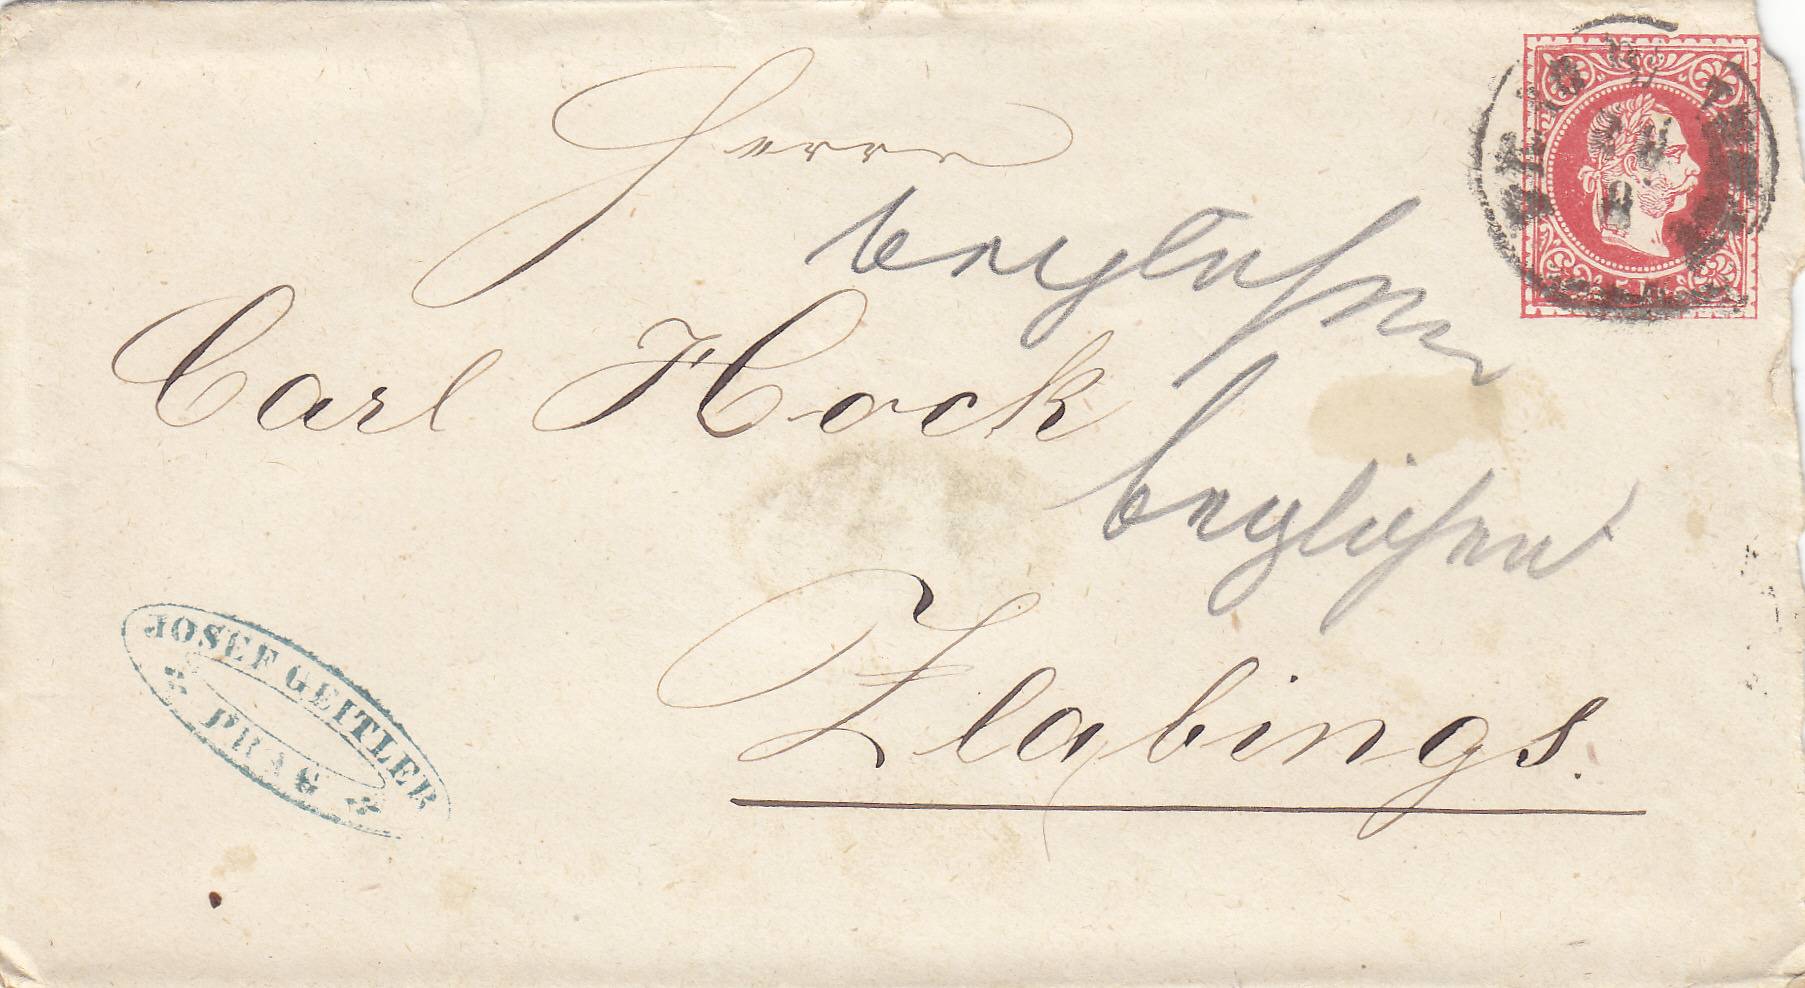 Herrn
Carl Hock
beglichen
beglichen
Zlabings.
JOSEF GEITLER
PRAG